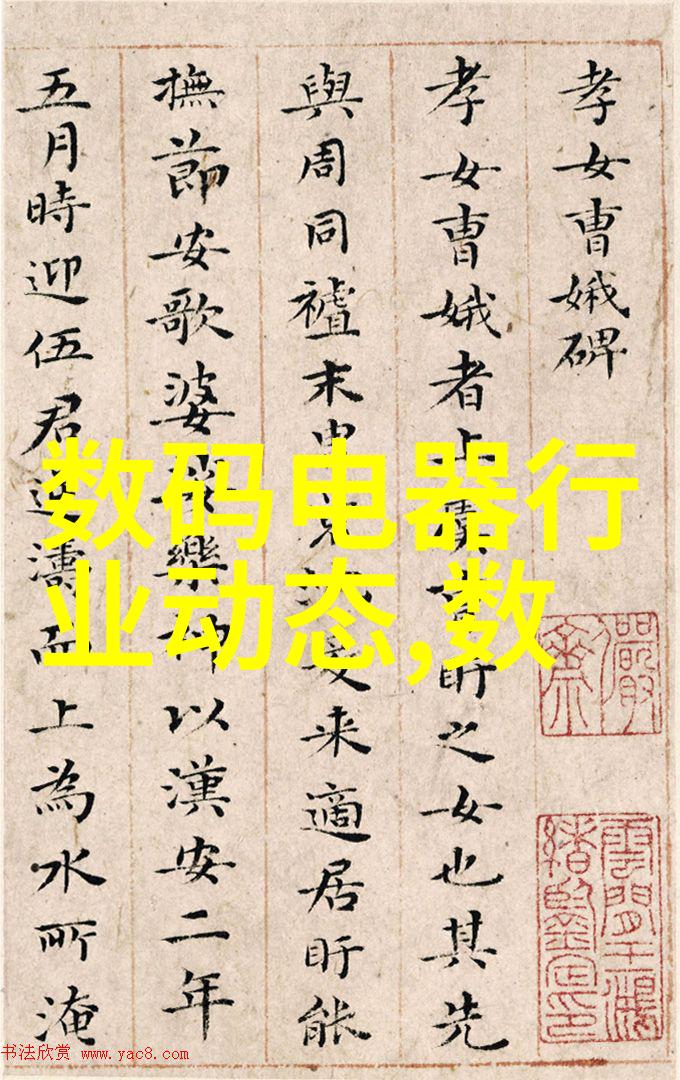 孝女曹娥碑
孝女曹娥者上虞曹盱之女也其先
與周同末来適居盱能
撫節安歌婆娑樂神以漢安二年
五月時迎伍君逆濤而上為水所淹
数码电器行
业动态,数
书法欣赏 www.yac8.com